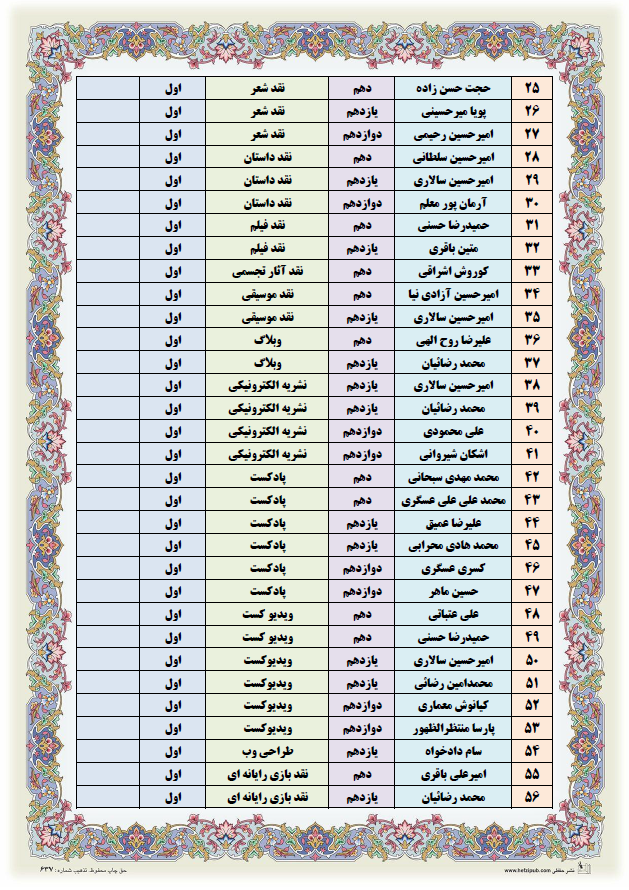 ۲۵ حجت حسن زاده دهم نقد شعر اول
۲۶ پویا میرحسینی یازدهم نقد شعر اول
۲۷ امیرحسین رحیمی دوازدهم نقد شعر اول
۲۸ امیرحسین سلطانی دهم نقد داستان اول
۲۹ امیرحسین سالاری یازدهم نقد داستان اول
۳۰ آرمان پور معلم دوازدهم نقد داستان اول
۳۱ حمیدرضا حسنی دهم نقد فیلم اول
۳۲ متین باقری یازدهم نقد فیلم اول
۳۳ کوروش اشراقی دهم نقد آثار تجسمی اول
۳۴ امیرحسین آزادی نیا دهم نقد موسیقی اول
۳۵ امیرحسین سالاری یازدهم نقد موسیقی اول
۳۶ علیرضا روح الهی دهم وبلاگ اول
۳۷ محمد رضائیان یازدهم وبلاگ اول
۳۸ امیرحسین سالاری یازدهم نشریه الکترونیکی اول
۳۹ محمد رضائیان یازدهم نشریه الکترونیکی اول
۴۰ علی محمودی دوازدهم نشریه الکترونیکی اول
۴۱ اشکان شیروانی دوازدهم نشریه الکترونیکی اول
۴۲ محمد مهدی سبحانی دهم پادکست اول
۴۳ محمد علی علی عسگری دهم پادکست اول
۴۴ علیرضا عمیق یازدهم پادکست اول
۴۵ محمد هادی محرابی یازدهم پادکست اول
۴۶ کسری عسگری دوازدهم پادکست اول
۴۷ حسین ماهر دوازدهم پادکست اول
۴۸ علی عتباتی دهم ویدیو کست اول
۴۹ حمیدرضا حسنی دهم ویدیوکست اول
۵۰ امیرحسین سالاری یازدهم ویدیوکست اول
۵۱ محمدامین رضائی یازدهم ویدیوکست اول
۵۲ کیانوش معماری دوازدهم ویدیوکست اول
۵۳ پارسا منتظرالظهور دوازدهم ویدیوکست اول
۵۴ سام دادخواه یازدهم طراحی وب اول
۵۵ امیرعلی باقری دهم نقد بازی رایانه ای اول
۵۶ محمد رضائیان یازدهم نقد بازی رایانه ای اول
نشر حفظی www.hefzipub.com
حق چاپ محفوظ. تذهیب شماره: ۶۳۷